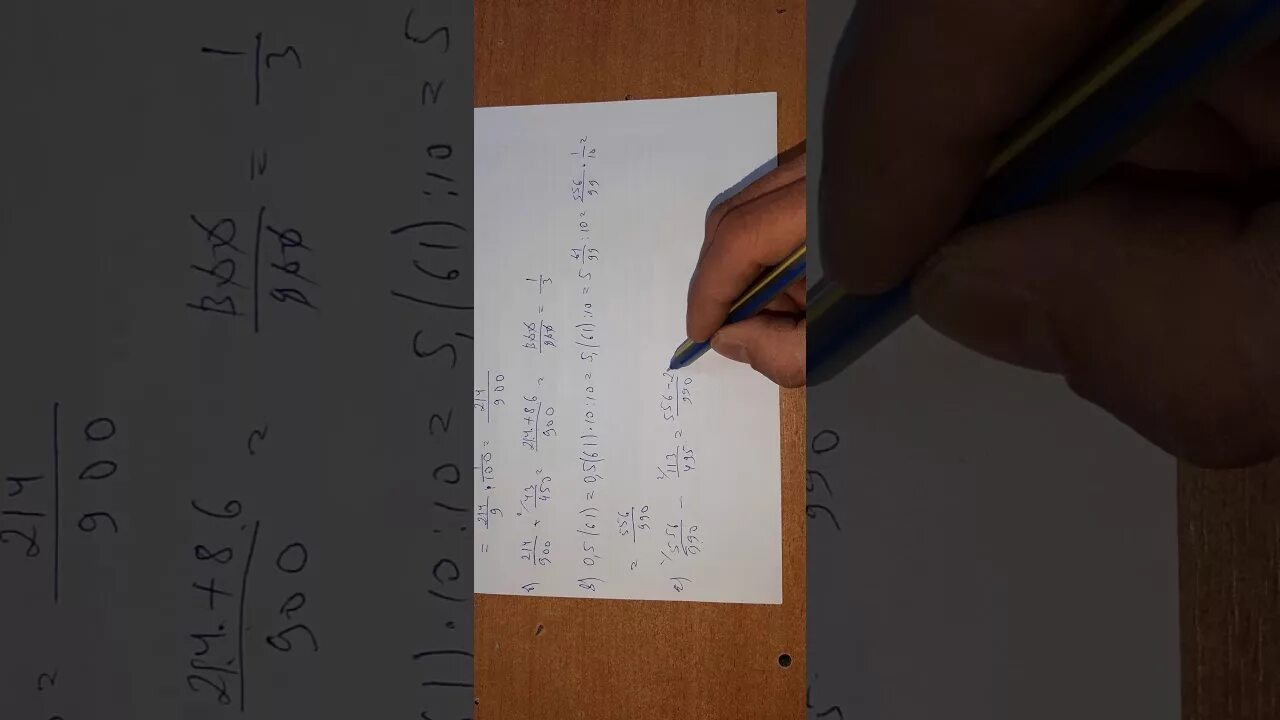 = 214/9 · 1/100 = 214/900
б) 214/900 + 43/450 = 214+86/900 = 300/900 = 1/3
в) 0,5(61) = 0,5(61)·10:10 = 5,(61):10 = 5 61/99 :10 = 556/99 · 1/10 =
= 556/990
г) 556/990 - 113/495 = 556-2/990